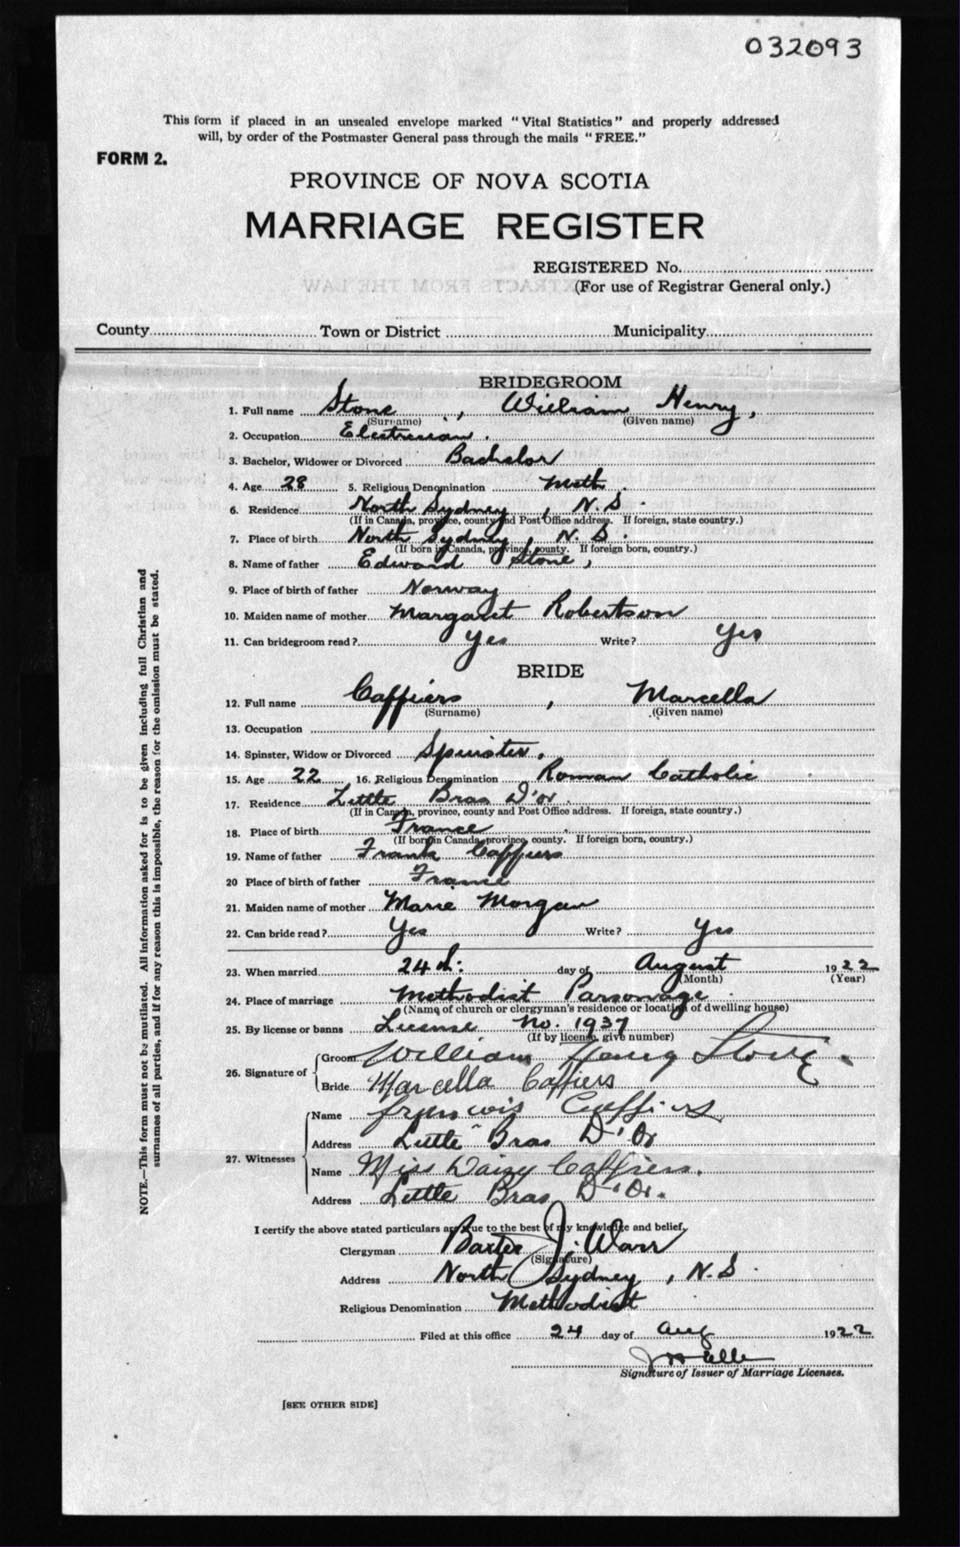 032093
This form if placed in an unsealed envelope marked "Vital Statistics" and properly addressed
will, by order of the Postmaster General pass through the mails "FREE."
FORM 2.
PROVINCE OF NOVA SCOTIA
MARRIAGE REGISTER
REGISTERED No.
(For use of Registrar General only.)
County Town or District Municipality
BRIDEGROOM
1. Full name Stone, William Henry,
(Surname) (Given name)
2. Occupation Electrician.
3. Bachelor, Widower or Divorced Bachelor
4. Age 28 5. Religious Denomination Meth.
6. Residence North Sydney, N.S.
(If in Canada, province, county and Post Office address. If foreign, state country.)
7. Place of birth North Sydney, N.S.
(If born in Canada, province, county. If foreign born, country.)
8. Name of father Edward Stone,
9. Place of birth of father Norway
10. Maiden name of mother Margaret Robertson
11. Can bridegroom read? Yes Write? Yes
BRIDE
12. Full name Caffiers, Marcella
(Surname) (Given name)
13. Occupation
14. Spinster, Widow or Divorced Spinster.
15. Age 22 16. Religious Denomination Roman Catholic
17. Residence Little Bras D'or.
(If in Canada, province, county and Post Office address. If foreign, state country.)
18. Place of birth France
(If born in Canada, province, county. If foreign born, country.)
19. Name of father Frank Caffiers
20 Place of birth of father France
21. Maiden name of mother Marie Morgan
22. Can bride read? Yes Write? Yes
23. When married 24th: day of August 1922
(Month) (Year)
24. Place of marriage Methodist Parsonage
(Name of church or clergyman's residence or location of dwelling house)
25. By license or banns License No. 1937
(If by license, give number)
26. Signature of Groom William Henry Stone.
Bride Marcella Caffiers
27. Witnesses
Name Caffiers
Address Little Bras D'Or
Name Miss Daizy Caffiers.
Address Little Bras D'Or.
I certify the above stated particulars are true to the best of my knowledge and belief.
Clergyman Baxter J. Warr
(Signature)
Address North Sydney, N.S.
Religious Denomination Methodist
Filed at this office 24 day of Aug 1922
Signature of Issuer of Marriage Licenses.
[SEE OTHER SIDE]
NOTE.—This form must not be mutilated. All information asked for is to be given including full Christian and
surnames of all parties, and if for any reason this is impossible, the reason for the omission must be stated.